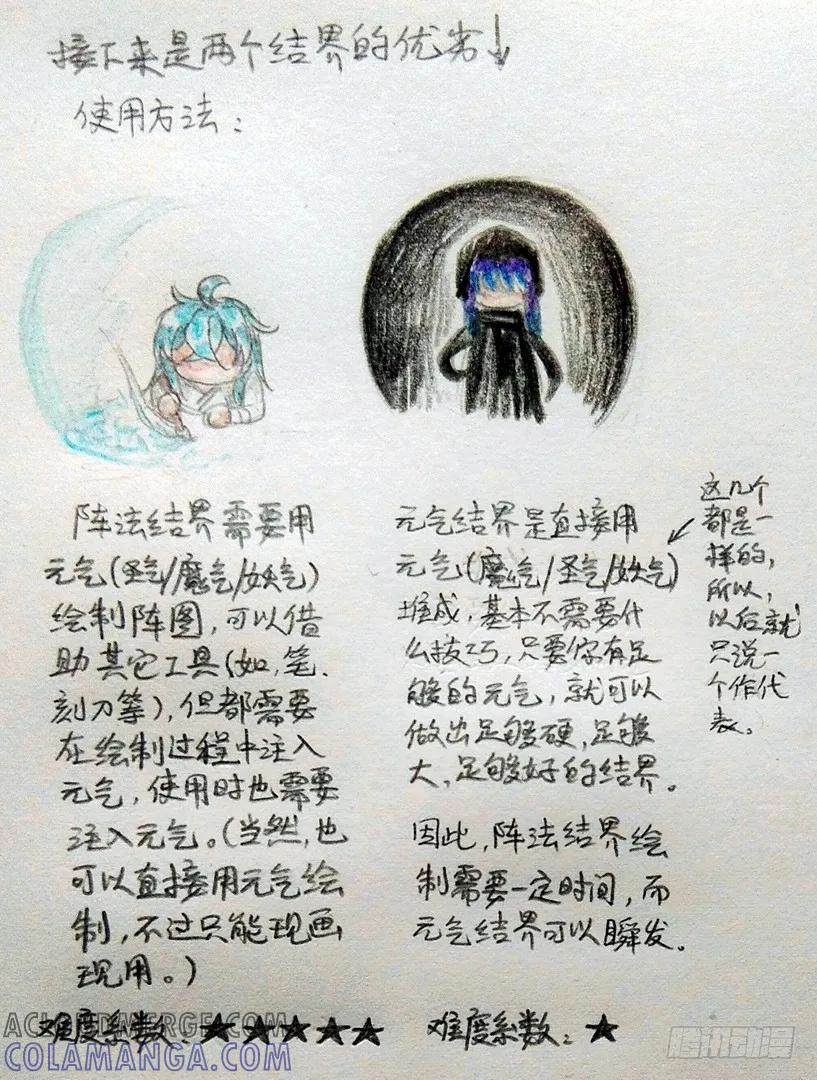 接下来是两个结界的优劣↓
使用方法：
阵法结界需要用
元气(圣气/魔气/妖气)
绘制阵图，可以借
助其它工具(如，笔、
刻刀等)，但都需要
在绘制过程中注入
元气，使用时也需要
注入元气。(当然，也
可以直接用元气绘
制，不过只能现画
现用。)
难度系数：★★★★★
元气结界是直接用
元气(魔气/圣气/妖气)
堆成，基本不需要什
么技巧，只要你有足
够的元气，就可以
做出足够硬，足够
大，足够好的结界。
因此，阵法结界绘
制需要一定时间，而
元气结界可以瞬发。
难度系数：★
这几个
都是一
样的，
所以，
以后就
只说一
个作代
表。
ACLOUDMERGE.COM
COLAMANGA.COM
腾讯动漫